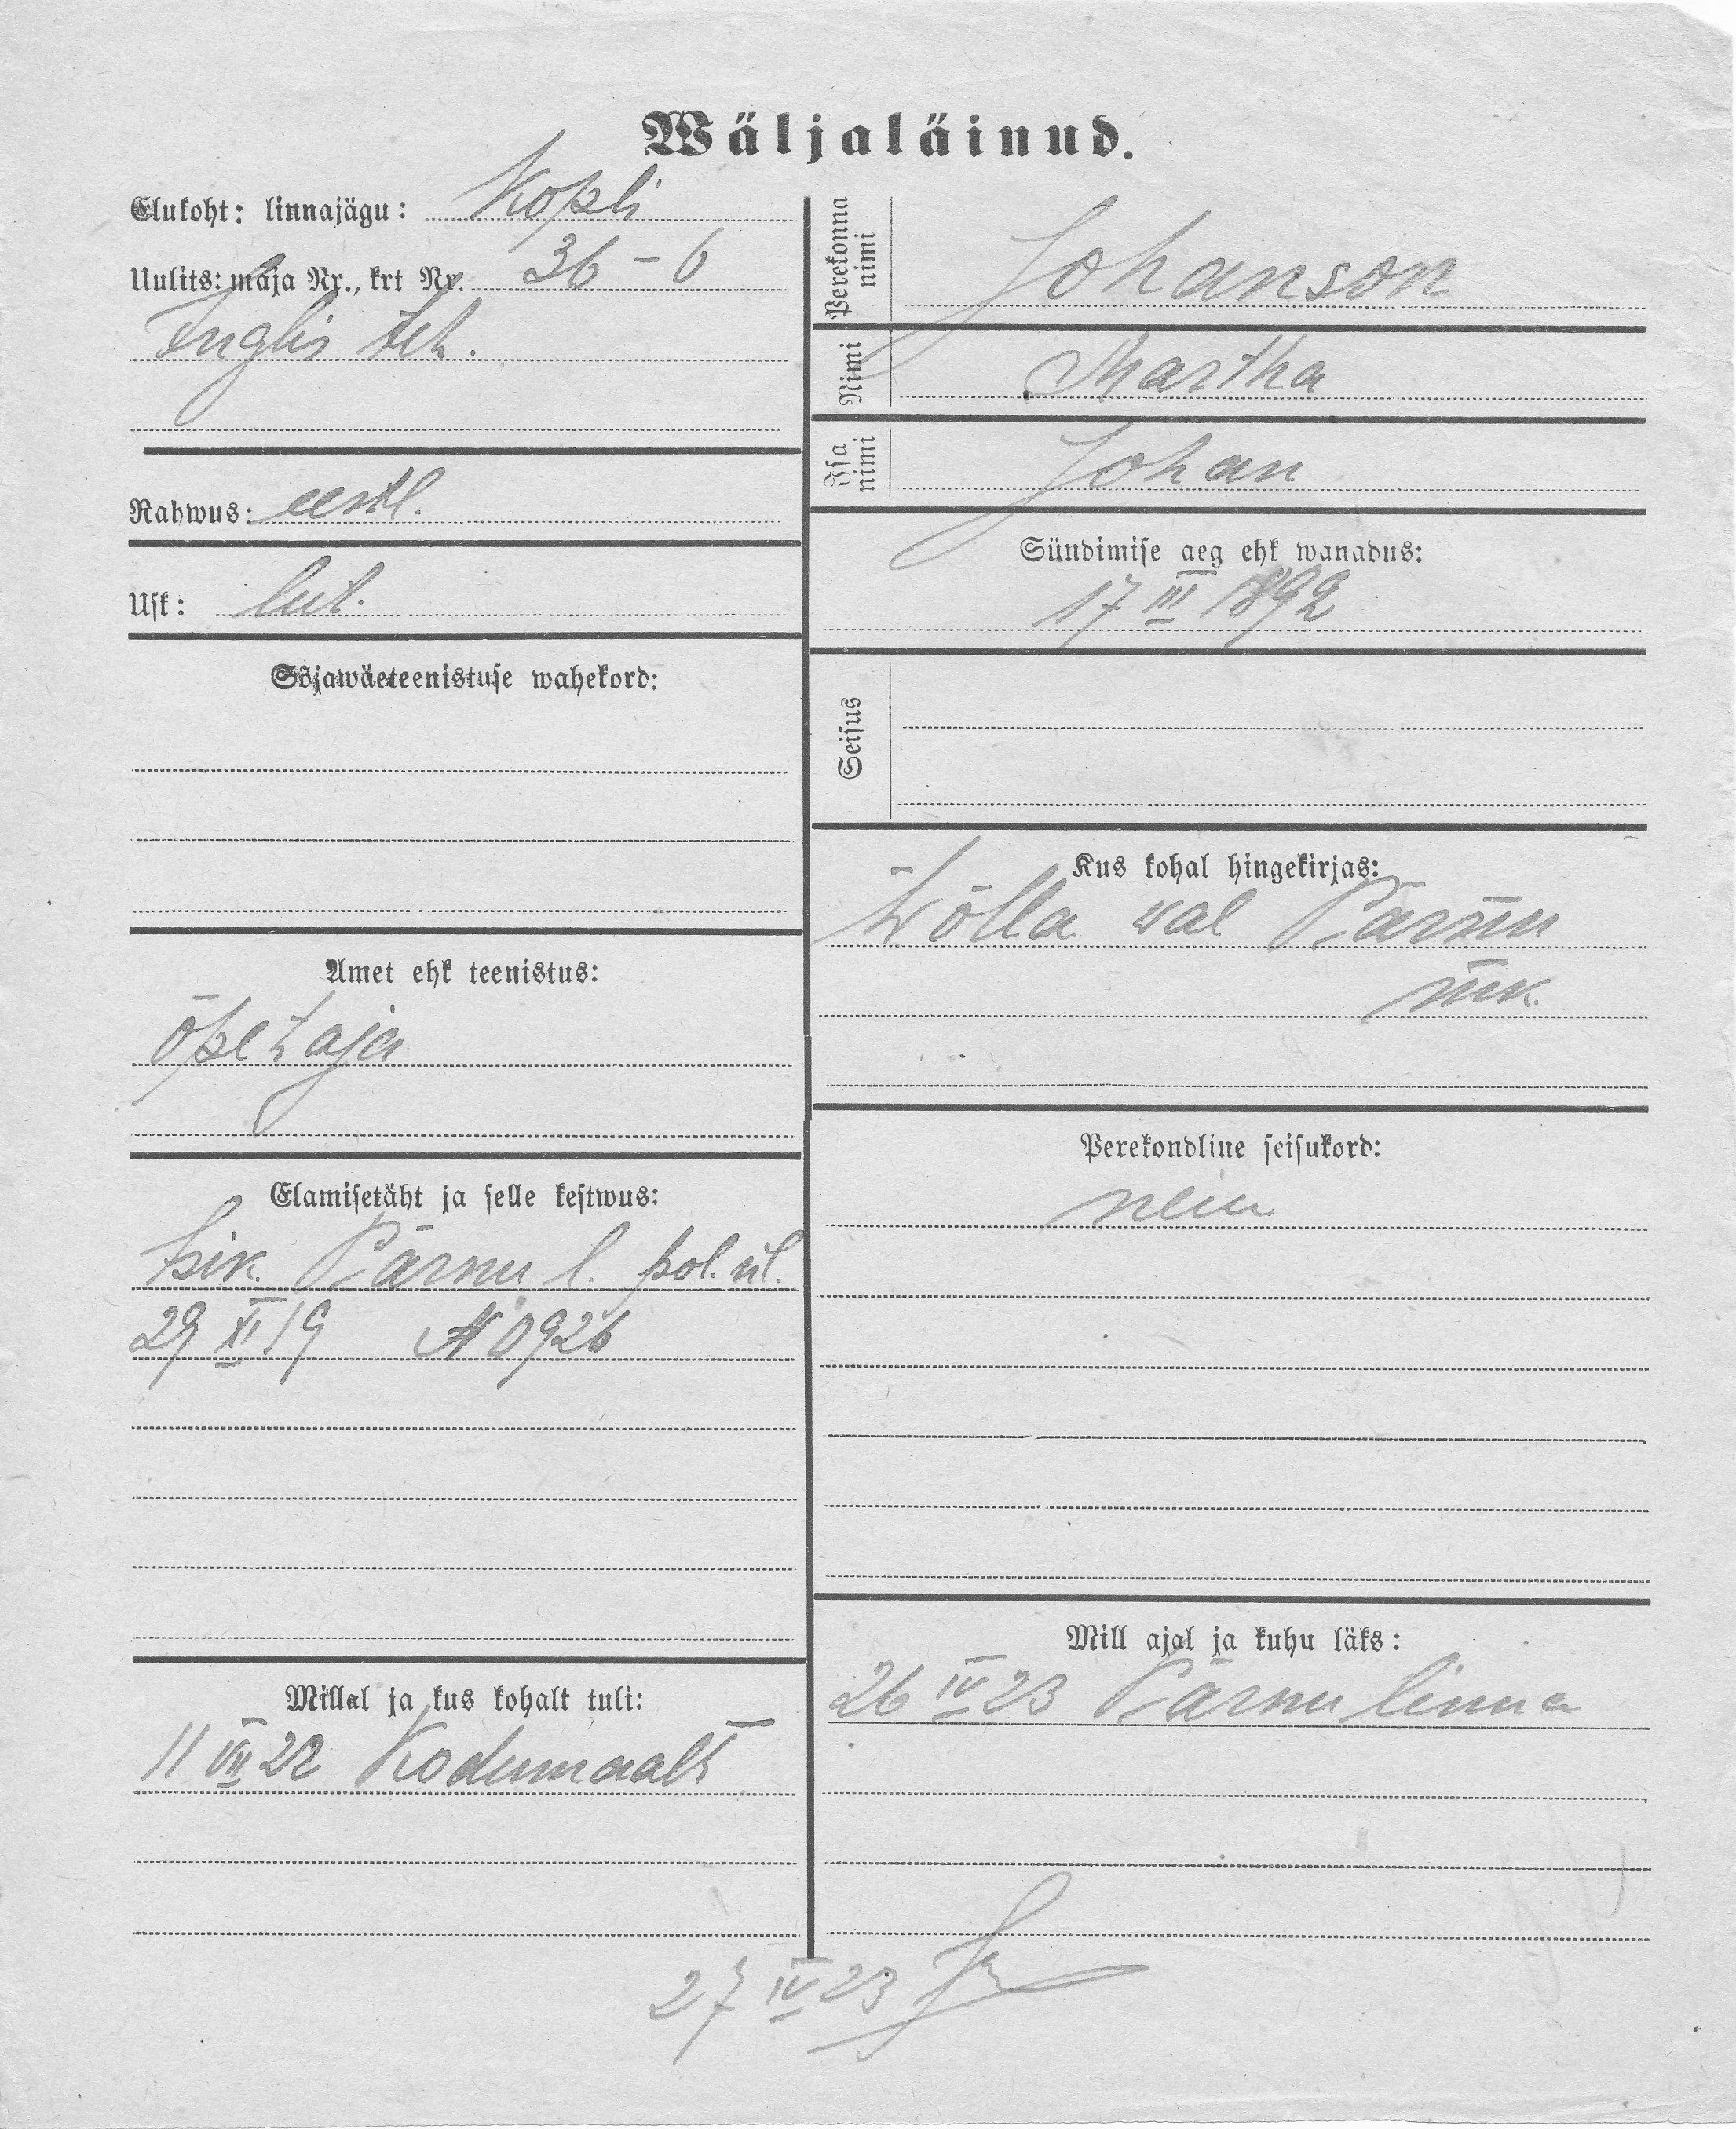 Wäljaläinud.
Elukoht: linnajägu: Kopli
Uulits: maja Nr., krt Nr. 36 – 6
Inglis teh.
Rahwus: eestl.
Usk: lut.
Sõjawäeteenistuse wahekord:
Amet ehk teenistus:
õpetaja
Elamisetäht ja selle kestwus:
Isik. Pärnu l. pol. ül.
29 XI 19 № 0926
Millal ja kus kohalt tuli:
11 VII 22 Kodumaalt
Perekonna nimi Johanson
Nimi Martha
Isa nimi Johan
Sündimise aeg ehk wanadus:
17 III 1892
Seisus
Kus kohal hingekirjas:
wal Pärnu
mk.
Perekondline seisukord:
neiu
Mill ajal ja kuhu läks:
26 IV 23 Pärnu linna
27 IV 23